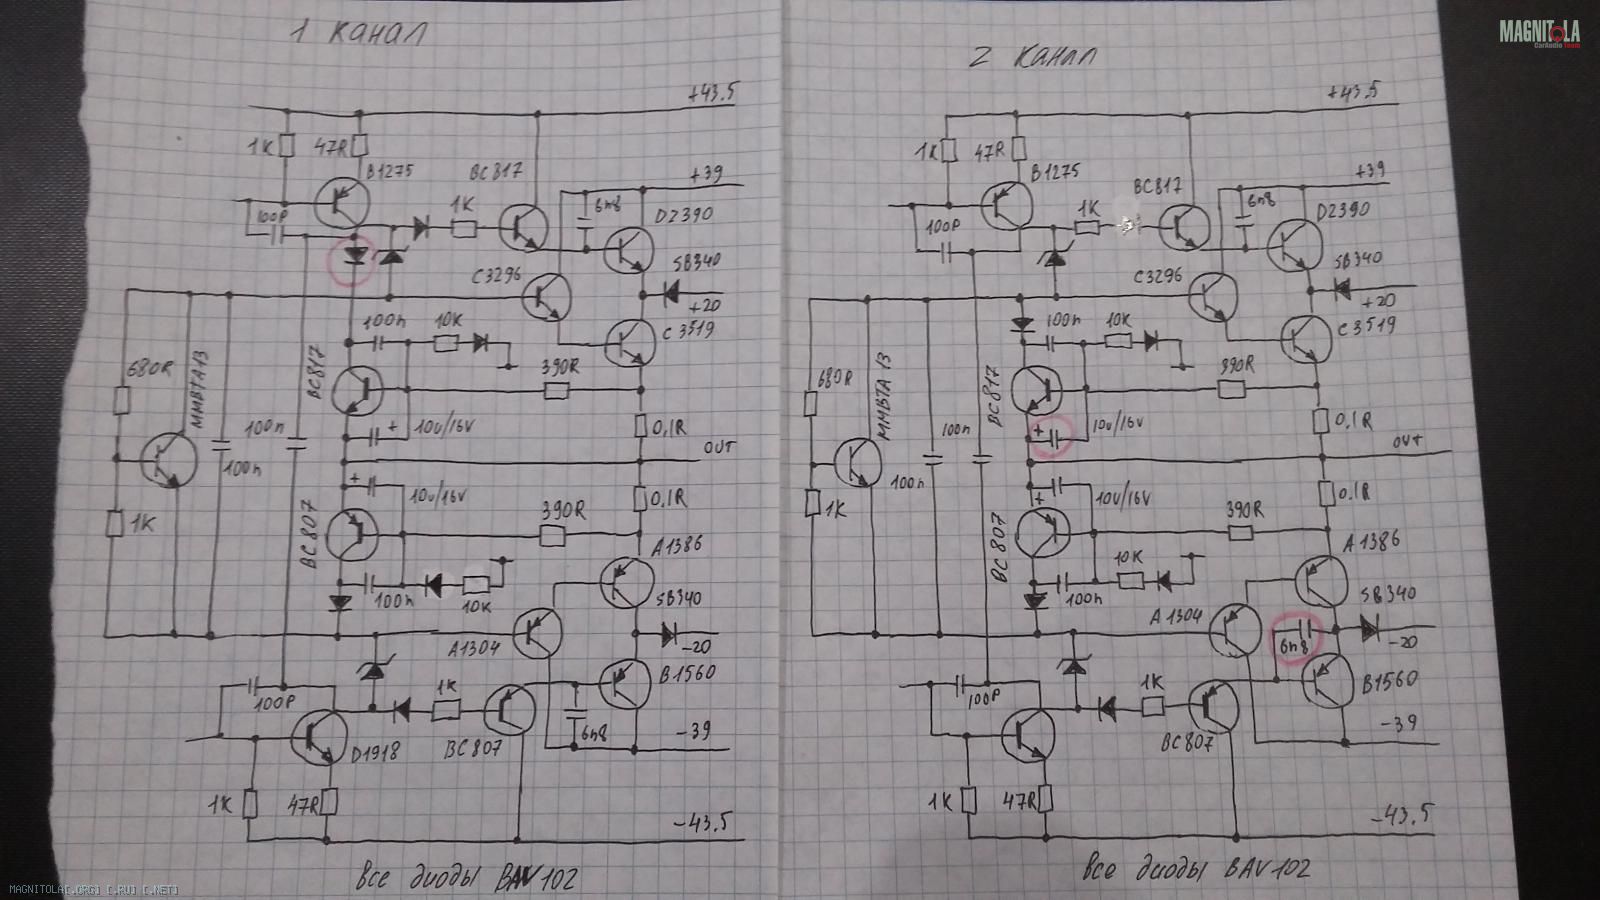 1 канал
+43.5
1K
47R
B1275
BC817
+39
1K
6n8
100P
D2390
C3296
SB340
+20
100n
10K
C3519
680R
MMBTA13
BC817
390R
100n
10u/16V
0,1R
100n
OUT
10u/16V
0,1R
1K
BC807
390R
A1386
100n
10K
SB340
A1304
-20
B1560
100P
1K
6n8
-39
D1918
BC807
1K
47R
-43.5
Все диоды BAV102
2 канал
+43.5
1K
47R
B1275
BC817
+39
6n8
1K
D2390
100P
C3296
SB340
+20
100n
10K
C3519
680R
MMBTA13
BC817
390R
+
10u/16V
0,1R
100n
100n
OUT
+
10u/16V
0,1R
1K
BC807
390R
A1386
10K
100n
SB340
A1304
6n8
-20
100P
1K
B1560
BC807
-39
1K
47R
-43.5
Все диоды BAV102
MAGNITOLA
CarAudio Team
MAGNITOLA[.ORG] [.RU] [.NET]